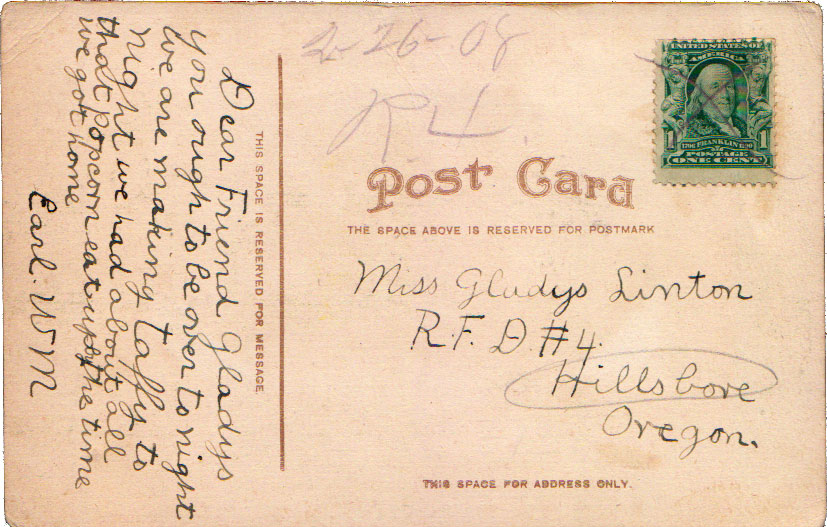 Dear Friend Gladys
you ought to be over to night
we are making taffy to
night we had about all
that popcorn eat up by the time
we got home
Earl. W M
THIS SPACE IS RESERVED FOR MESSAGE
2-26-08
R.4.
UNITED STATES OF
AMERICA
1706 FRANKLIN 1790
1 1
POSTAGE
ONE CENT
Post Card
THE SPACE ABOVE IS RESERVED FOR POSTMARK
Miss Gladys Linton
R.F.D #4.
Hillsbore
Oregon.
THIS SPACE FOR ADDRESS ONLY.